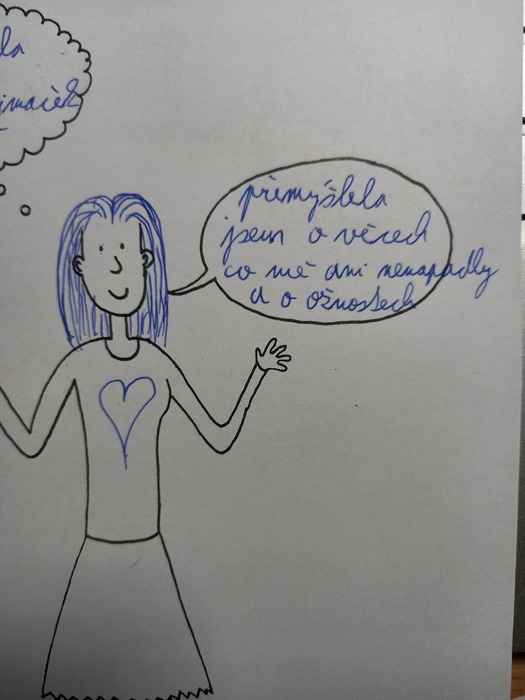 la
přemýšlela
jsem o věcech
co mě ani nenapadly
a o ožnostech